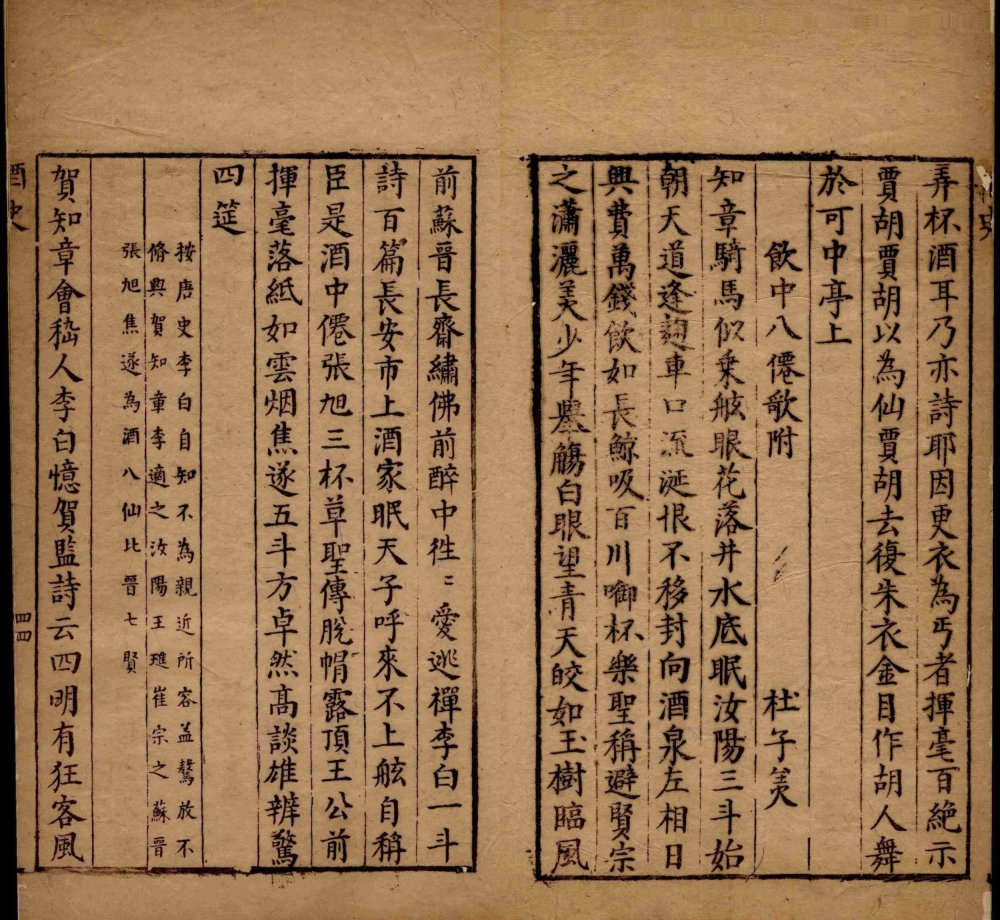 弄杯酒耳乃亦詩耶因更衣為丐者揮毫百絶示
賈胡賈胡以為仙賈胡去復朱衣金目作胡人舞
於可中亭上
飲中八僊歌附 杜子美
知章騎馬似乗舷眼花落井水底眠汝陽三斗始
朝天道逢麹車口流涎恨不移封向酒泉左相日
興費萬錢飲如長鯨吸百川啣杯樂聖稱避賢宗
之瀟灑美少年舉觴白眼望青天皎如玉樹臨風
前蘇晉長齋繡佛前醉中徃〻愛逃禪李白一斗
詩百篇長安市上酒家眠天子呼來不上舷自稱
臣是酒中僊張旭三杯草聖傳脫帽露頂王公前
揮毫落紙如雲烟焦遂五斗方卓然高談雄辨驚
四筵
按唐史李白自知不為親近所容益驁放不
脩與賀知章李適之汝陽王璡崔宗之蘇晉
張旭焦遂為酒八仙比晉七賢
賀知章會嵇人李白憶賀監詩云四明有狂客風
酉史
四四